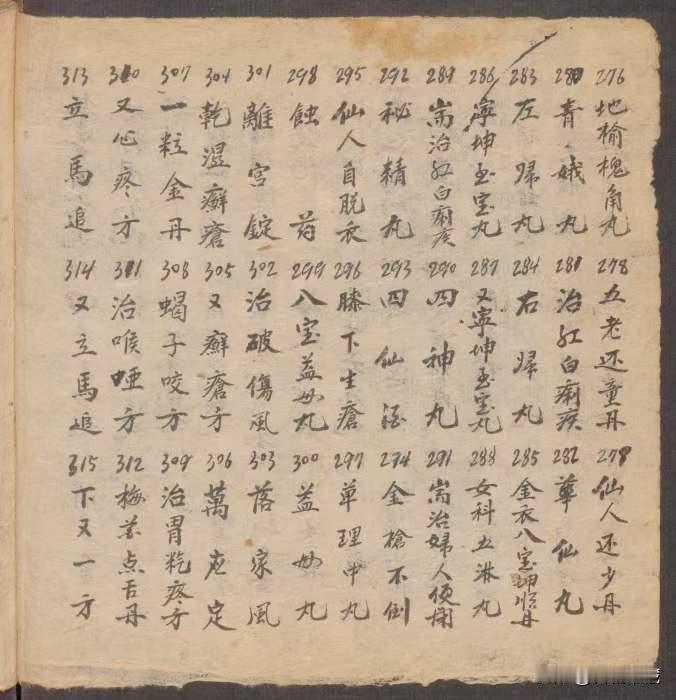 276 地榆槐角丸 278 五老还童丹 278 仙人还少丹
280 青娥丸 281 治红白痢疾 282 華仙丸
283 左歸丸 284 右歸丸 285 金衣八宝坤順丹
286 寧坤玉宝丸 287 又寧坤玉宝丸 288 女科五淋丸
289 耑治红白痢疾 290 四神丸 291 耑治婦人便闭
292 秘精丸 293 四仙酒 294 金槍不倒
295 仙人自脱衣 296 膝下生瘡 297 单理中丸
298 蚀药 299 八宝益母丸 300 益母丸
301 離宫錠 302 治破傷風 303 落家風
304 乾湿癬瘡 305 又癬瘡方 306 萬应定
307 一粒金丹 308 蝎子咬方 309 治胃疼方
310 又心疼方 311 治喉哑方 312 梅花点舌丹
313 立馬追 314 又立馬追 315 下又一方